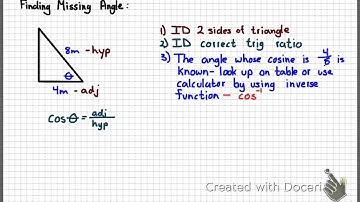 Finding Missing Angle:
1) ID 2 sides of triangle
2) ID correct trig ratio
3) The angle whose cosine is 4/8 is
known- look up on table or use
calculator by using inverse
function - cos⁻¹
8m - hyp
θ
4m - adj
cos θ = adj/hyp
Created with Doceri